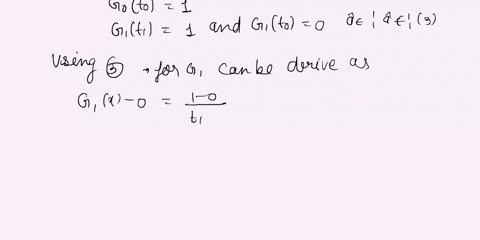 G₀(t₀) = 1
G₁(t₁) = 1 and G₁(t₀) = 0 â€¦ â€¦(3)
Using ③, for G₁ can be derive as
G₁(x) - 0 = 1-0 / t₁